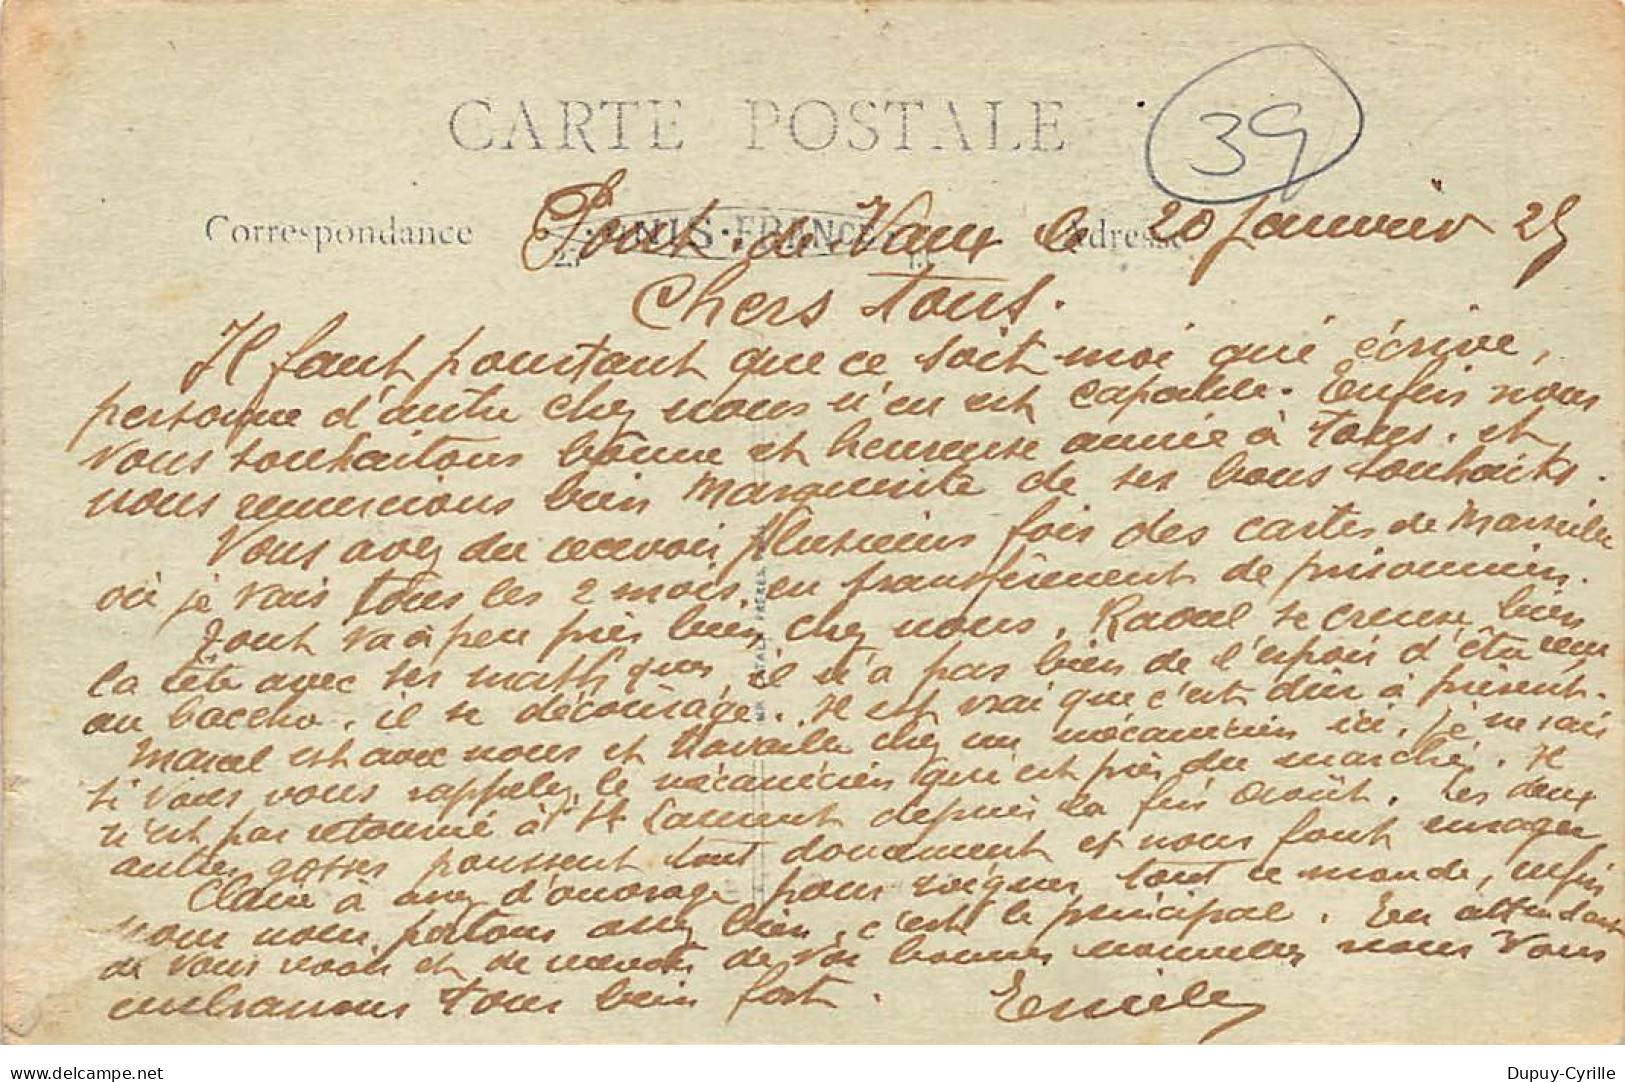 CARTE POSTALE
39
Correspondance
UNIS-FRANCE
Adresse
Pont-de-Vaux le 20 Janvier 25
Chers tous.
Il faut pourtant que ce soit moi qui écrive,
personne d'autre chez nous n'en est capable. Enfin nous
vous souhaitons bonne et heureuse année à tous. et
nous remercions bien Marguerite de ses bons souhaits.
Vous avez du recevoir plusieurs fois des cartes de Marseille
où je vais tous les 2 mois, en transfèrement de prisonniers.
Tout va à peu près bien chez nous. Raoul se creuse bien
la tête avec ses maths, il n'a pas bien de l'espoir d'être reçu
au baccho. il se décourage. Il est vrai que c'est dur à présent.
Marcel est avec nous et travaille chez un mécanicien ici, je ne sais
si vous vous rappelez le mécanicien qui est près du marché. Il
n'est pas retourné à St Laurent depuis la fin Août. Les deux
autres gosses poussent tout doucement et nous font enrager
Claire à assez d'ouvrage pour soigner tout ce monde, enfin
nous nous portons assez bien, c'est le principal. En attendant
de vous voir et de recevoir de vos bonnes nouvelles nous vous
embrassons tous bien fort. Emile
Dupuy-Cyrille
delcampe.net